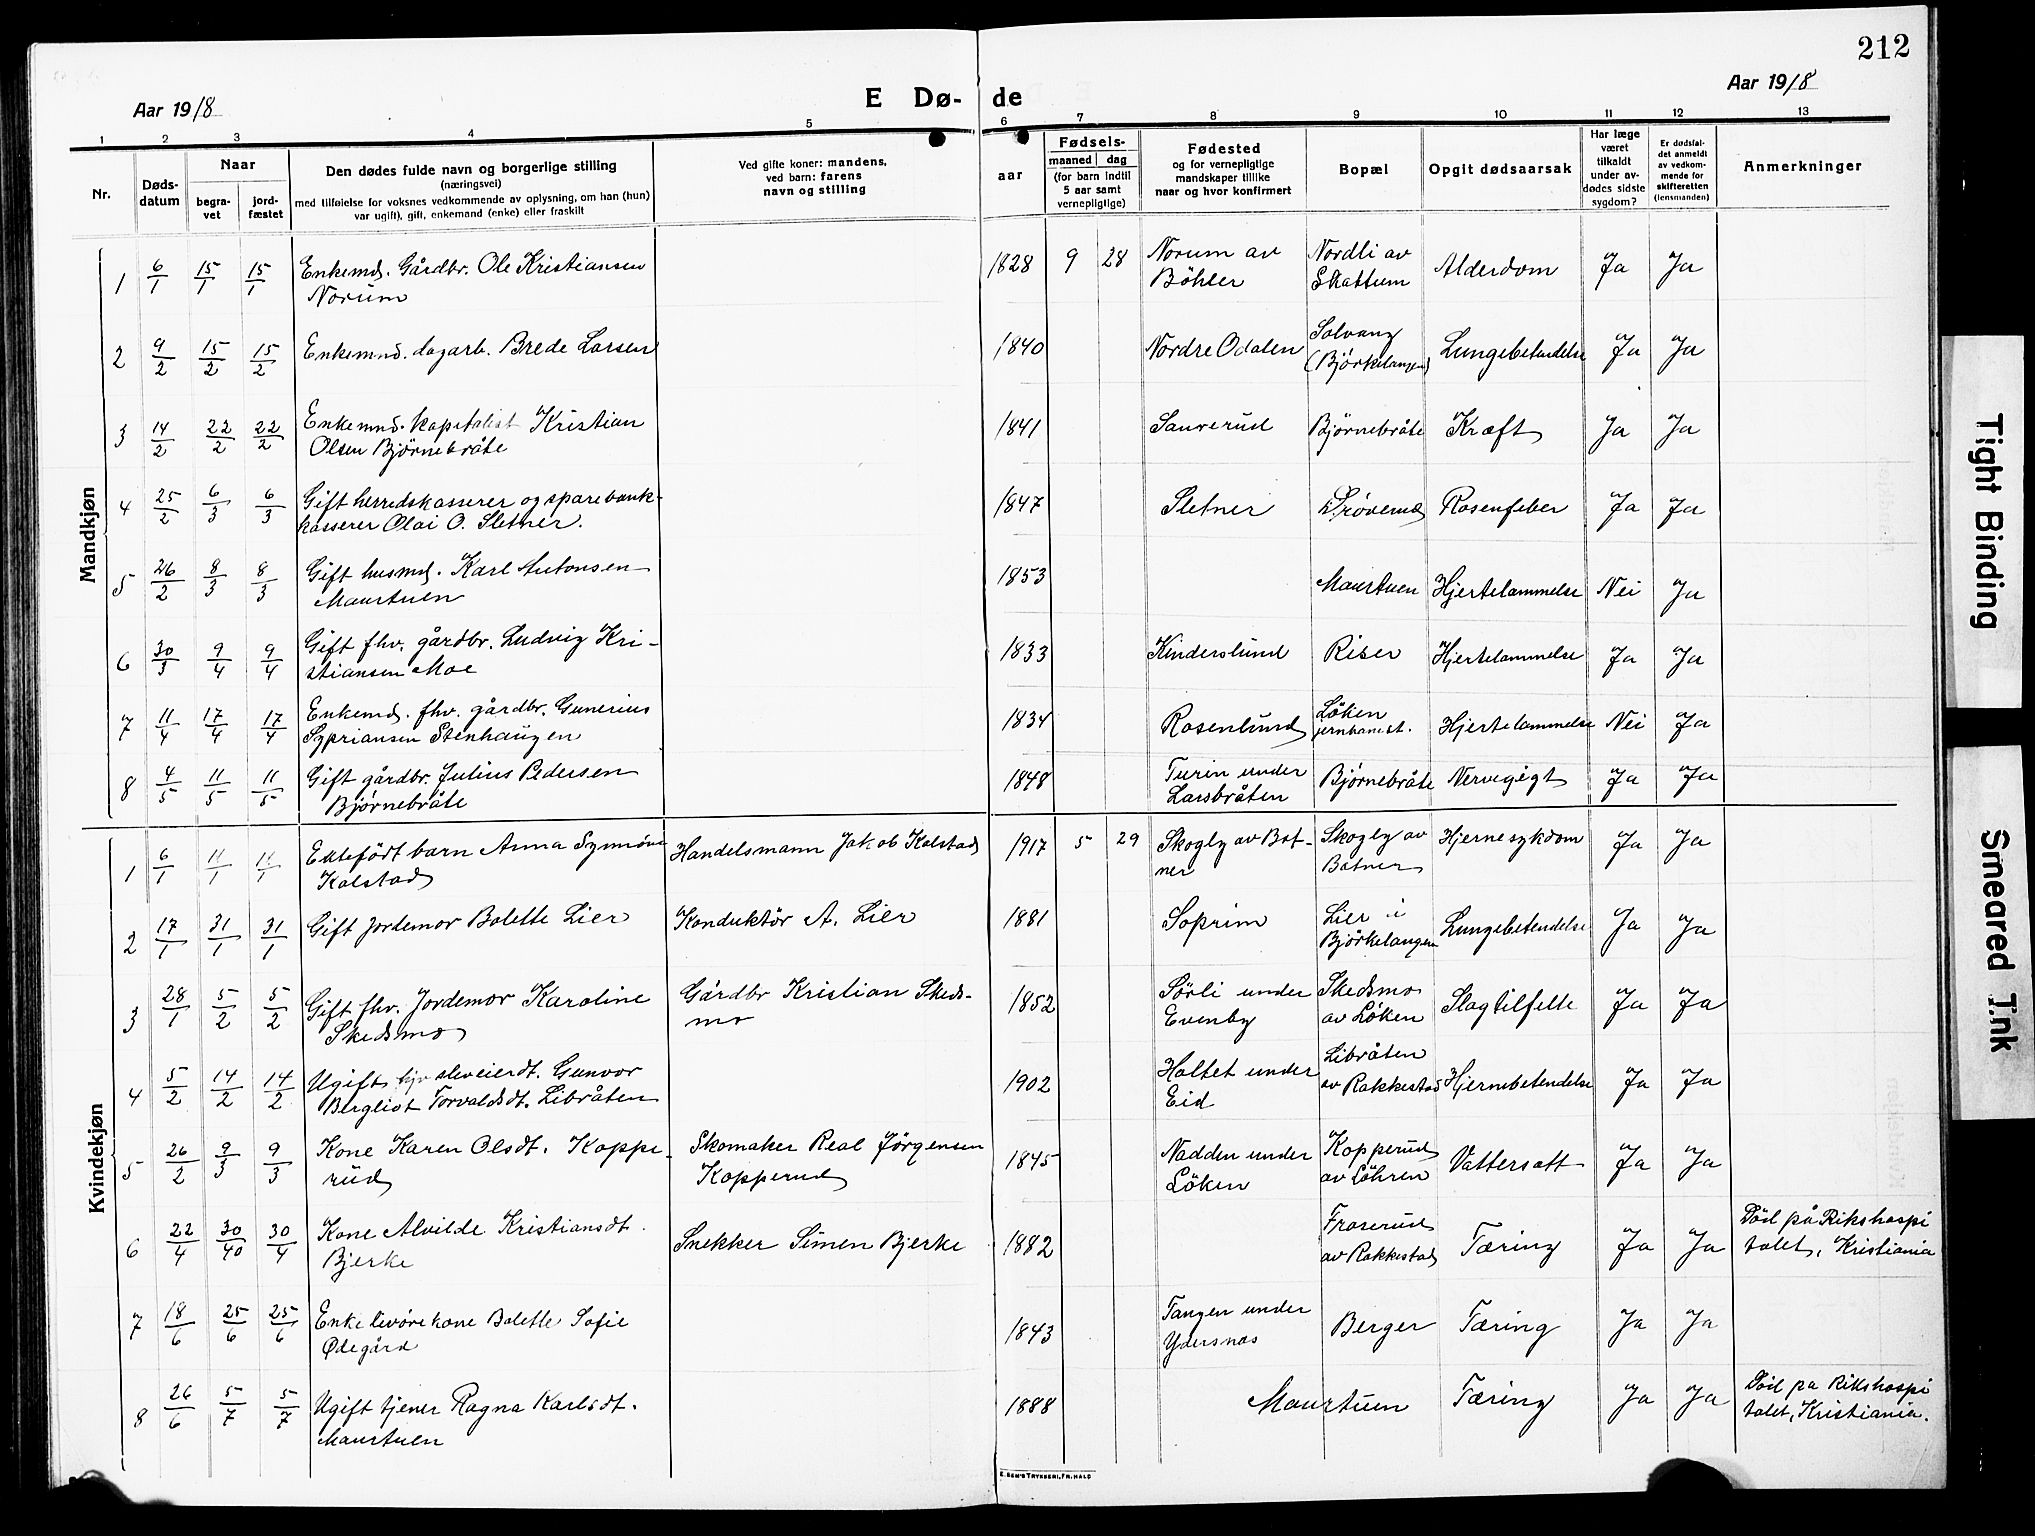 212
Aar 1918
E Dø- de
Aar 1918
1 2 3 4 5 6 7 8 9 10 11 12 13
Nr.
Døds-
datum
Naar
begra-
vet
jord-
fæstet
Den dødes fulde navn og borgerlige stilling
(næringsvei)
med tilføielse for voksnes vedkommende av oplysning, om han (hun)
var ugift), gift, enkemand (enke) eller fraskilt
Ved gifte koner: mandens,
ved barn: farens
navn og stilling
aar
Fødsels-
maaned dag
(for barn indtil
5 aar samt
vernepligtige)
Fødested
og for vernepligtige
mandskaper tillike
naar og hvor konfirmert
Bopæl
Opgit dødsaarsak
Har læge
været
tilkaldt
under av-
dødes sidste
sygdom?
Er dødsfal-
det anmeldt
av vedkom-
mende for
skifteretten
(lensmanden)
Anmerkninger
Mandkjøn
1 6/1 15/1 15/1 Enkemd. Gårdbr. Ole Kristiansen
Norum
1828 9 28 Norum av
Böhler
Nordli av
Skattum
Alderdom Ja Ja
2 9/2 15/2 15/2 Enkemnd. dagarb. Brede Larsen
1840 Nordre Odalen
Solvang
(Björkelangen)
Lungebetendelse Ja Ja
3 14/2 22/2 22/2 Enkemnd. kapitalist Kristian
Olsen Bjørnebråte
1841 Saurerud Bjørnebråte Kræft Ja Ja
4 25/2 6/3 6/3 Gift herredskasserer og sparebank-
kasserer Olai O. Sletner.
1847 Sletner Rosenfeber Ja Ja
5 26/2 8/3 8/3 Gift husmd. Karl Antonsen
Maurtuen
1853 Maurtuen Hjertelammelse Nei Ja
6 30/3 9/4 9/4 Gift fhv. gårdbr. Ludvig Kri-
stiansen Moe
1833 Kinderslund Riser Hjertelammelse Ja Ja
7 11/4 17/4 17/4 Enkemd. fhv. gårdbr. Gunerius
Sypriansen Stenhaugen
1834 Rosenlund
Löken
jernbanest.
Hjertelammelse Nei Ja
8 4/5 11/5 11/5 Gift gårdbr. Julius Pedersen
Bjørnebråte
1848 Turin under
Larsbråten
Bjørnebråte Nervegigt Ja Ja
Kvindekjøn
1 6/1 11/1 11/1 Ektefödt barn Anna Synnöve
Kolstad
Handelsmann Jakob Kolstad
1917 5 29 Skogly av Bot-
ner
Skogly av
Botner
Hjernesykdom Ja Ja
2 17/1 31/1 31/1 Gift Jordemor Bolette Lier
Konduktör A. Lier
1881 Soprim
Lier i
Björkelangen
Lungebetendelse Ja Ja
3 28/1 5/2 5/2 Gift fhv. Jordemor Karoline
Skedsmo
Gårdbr Kristian Skeds-
mo
1852 Sörli under
Evenby
Skedsmo
av Löken
Slagtilfelle Ja Ja
4 5/2 14/2 14/2 Ugift Gunvor
Bergliot Torvaldsdt. Libråten
1902 Holtet under
Eid
Libråten
av Rakkestad
Hjernebetendelse Ja Ja
5 26/2 9/3 9/3 Kone Karen Olsdt. Koppe-
rud
Skomaker Real Jörgensen
Kopperud
1845 Nadden under
Löken
Kopperud
av Löhren
Vattersott Ja Ja
6 22/4 30/40 30/4 Kone Alvilde Kristiansdt.
Bjerke
Snekker Simen Bjerke
1882
Fraserud
av Rakkestad
Tæring Ja Ja
Död på Rikshospi
talet, Kristiania
7 18/6 25/6 25/6 Enke livörekone Bolette Sofie
Ødegård
1843 Tangen under
Ydersnes
Berger Tæring Ja Ja
8 26/6 5/7 5/7 Ugift tjener Ragna Karlsdt.
Maurtuen
1888 Maurtuen Tæring Ja Ja
Död pa Rikshospi
talet, Kristiania.
Tight Binding
Smeared Ink